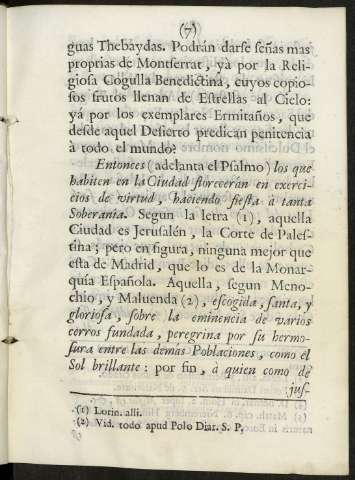 (7)
guas Thebaydas. Podrán darse señas mas
proprias de Montserrat, yà por la Reli-
giosa Cogulla Benedictina, cuyos copio-
sos frutos llenan de Estrellas al Cielo:
yá por los exemplares Ermitaños, que
desde aquel Desierto predican penitencia
à todo el mundo?
Entonces (adelanta el Psalmo) los que
habiten en la Ciudad florecerán en exerci-
cios de virtud, haciendo fiesta à tanta
Soberanía. Segun la letra (1), aquella
Ciudad es Jerusalén, la Corte de Pales-
tina; pero en figura, ninguna mejor que
esta de Madrid, que lo es de la Monar-
quía Española. Aquella, segun Meno-
chio, y Maluenda (2), escogida, santa, y
gloriosa, sobre la eminencia de varios
cerros fundada, peregrina por su hermo-
sura entre las demás Poblaciones, como el
Sol brillante: por fin, à quien como de
jus-
(1) Lorin. alli.
(2) Vid. todo apud Polo Diar. S. P.